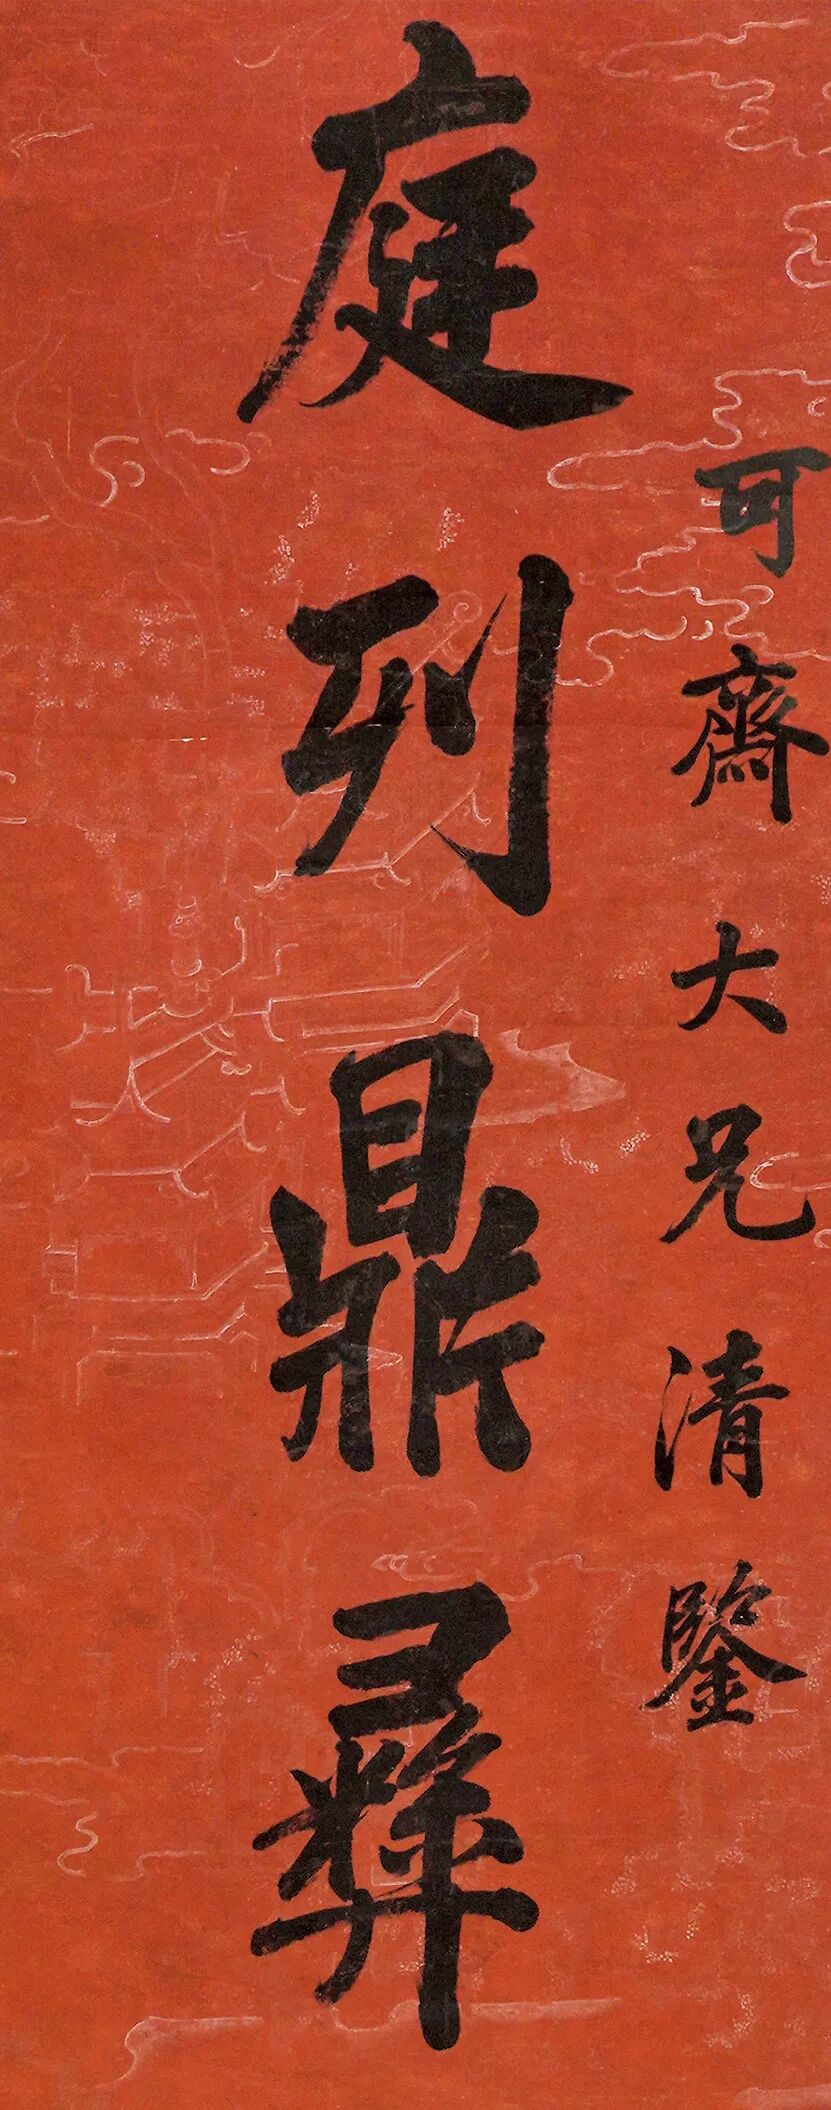 可齋大兄清鑒
庭列鼎彝